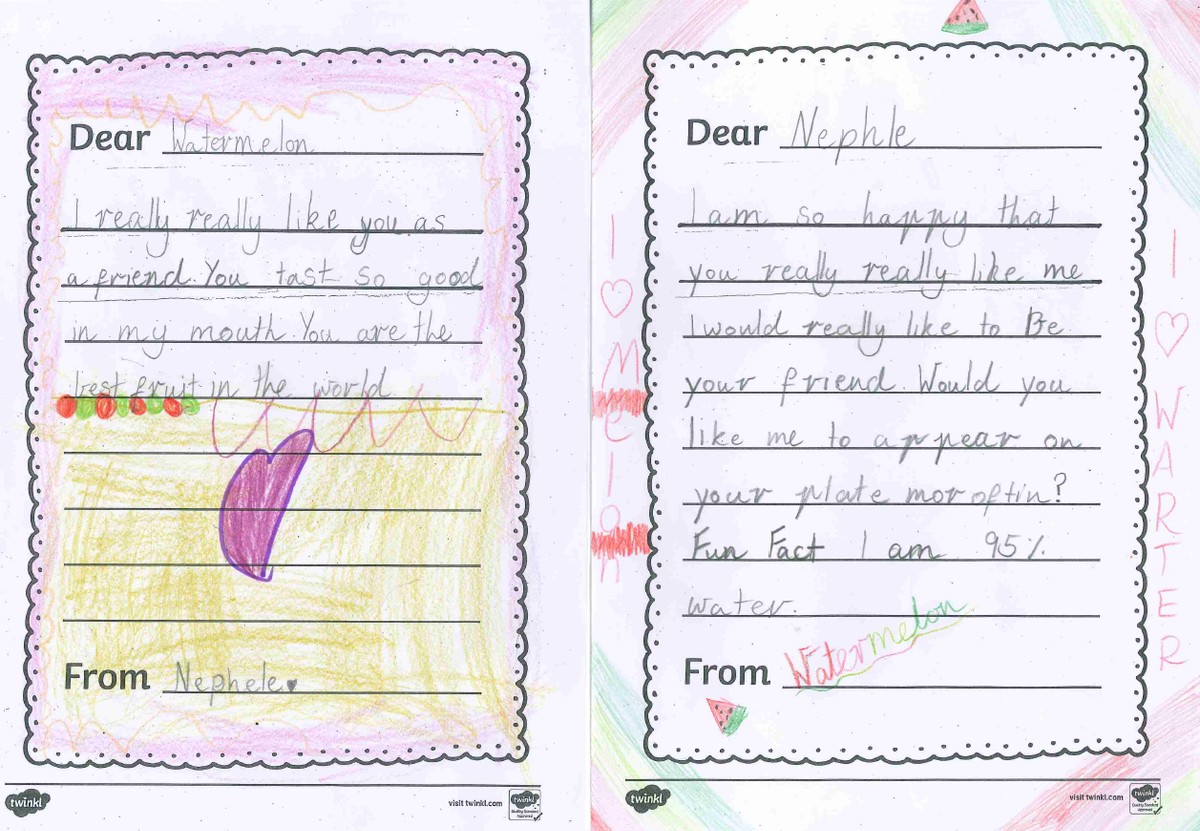 Dear Watermelon
I really really like you as
a friend. You tast so good
in my mouth. You are the
best fruit in the world
From Nephele
twinkl
visit twinkl.com
twinkl
Quality Standard
Approved
Dear Nephle
I am so happy that
you really really like me
I would really like to Be
your friend. Would you
like me to appear on
your plate mor oftin?
Fun Fact I am 95%
water.
From Watermelon
I ♡ Melon
I ♡ WARTER
twinkl
visit twinkl.com
twinkl
Quality Standard
Approved